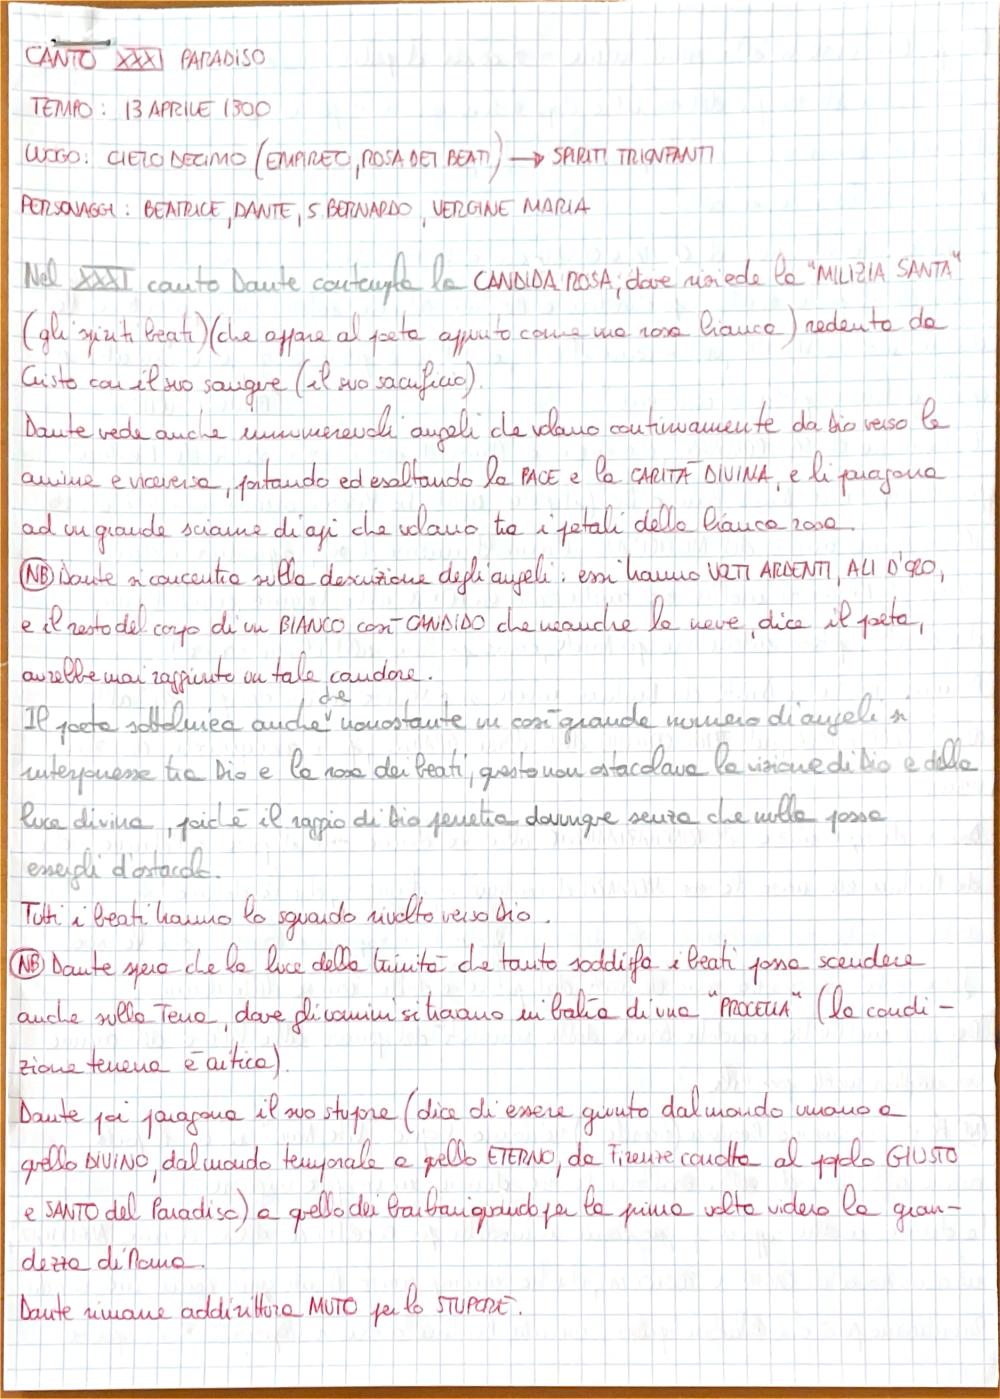 CANTO XXXI PARADISO
TEMPO: 13 APRILE 1300
LUOGO: CIELO DECIMO (EMPIREO, ROSA DEI BEATI) → SPIRITI TRIONFANTI
PERSONAGGI: BEATRICE, DANTE, S. BERNARDO, VERGINE MARIA
Nel XXXI canto Dante contempla la CANDIDA ROSA, dove risiede la "MILIZIA SANTA"
(gli spiriti beati) (che appare al poeta appunto come una rosa bianca) redento da
Cristo con il suo sangue (il suo sacrificio).
Dante vede anche innumerevoli angeli che volano continuamente da Dio verso le
anime e viceversa, portando ed esaltando la PACE e la CARITÀ DIVINA, e li paragona
ad un grande sciame di api che volano tra i petali della bianca rosa.
NB Dante si concentra sulla descrizione degli angeli: essi hanno VOLTI ARDENTI, ALI D'ORO,
e il resto del corpo di un BIANCO così CANDIDO che neanche la neve, dice il poeta,
avrebbe mai raggiunto un tale candore.
Il poeta sottolinea anche che nonostante un così grande numero di angeli si
interponesse tra Dio e la rosa dei beati, questo non ostacolava la visione di Dio e della
luce divina, poichè il raggio di Dio penetra dovunque senza che nulla possa
essergli d'ostacolo.
Tutti i beati hanno lo sguardo rivolto verso Dio.
NB Dante spera che la luce della trinità che tanto soddisfa i beati possa scendere
anche sulla Terra, dove gli uomini si trovano in balìa di una "PROCELLA" (la condi-
zione terrena è critica).
Dante poi paragona il suo stupore (dice di essere giunto dal mondo umano a
quello DIVINO, dal mondo temporale a quello ETERNO, da Firenze corrotta al popolo GIUSTO
e SANTO del Paradiso) a quello dei barbari quando per la prima volta videro la gran-
dezza di Roma.
Dante rimane addirittura MUTO per lo STUPORE.